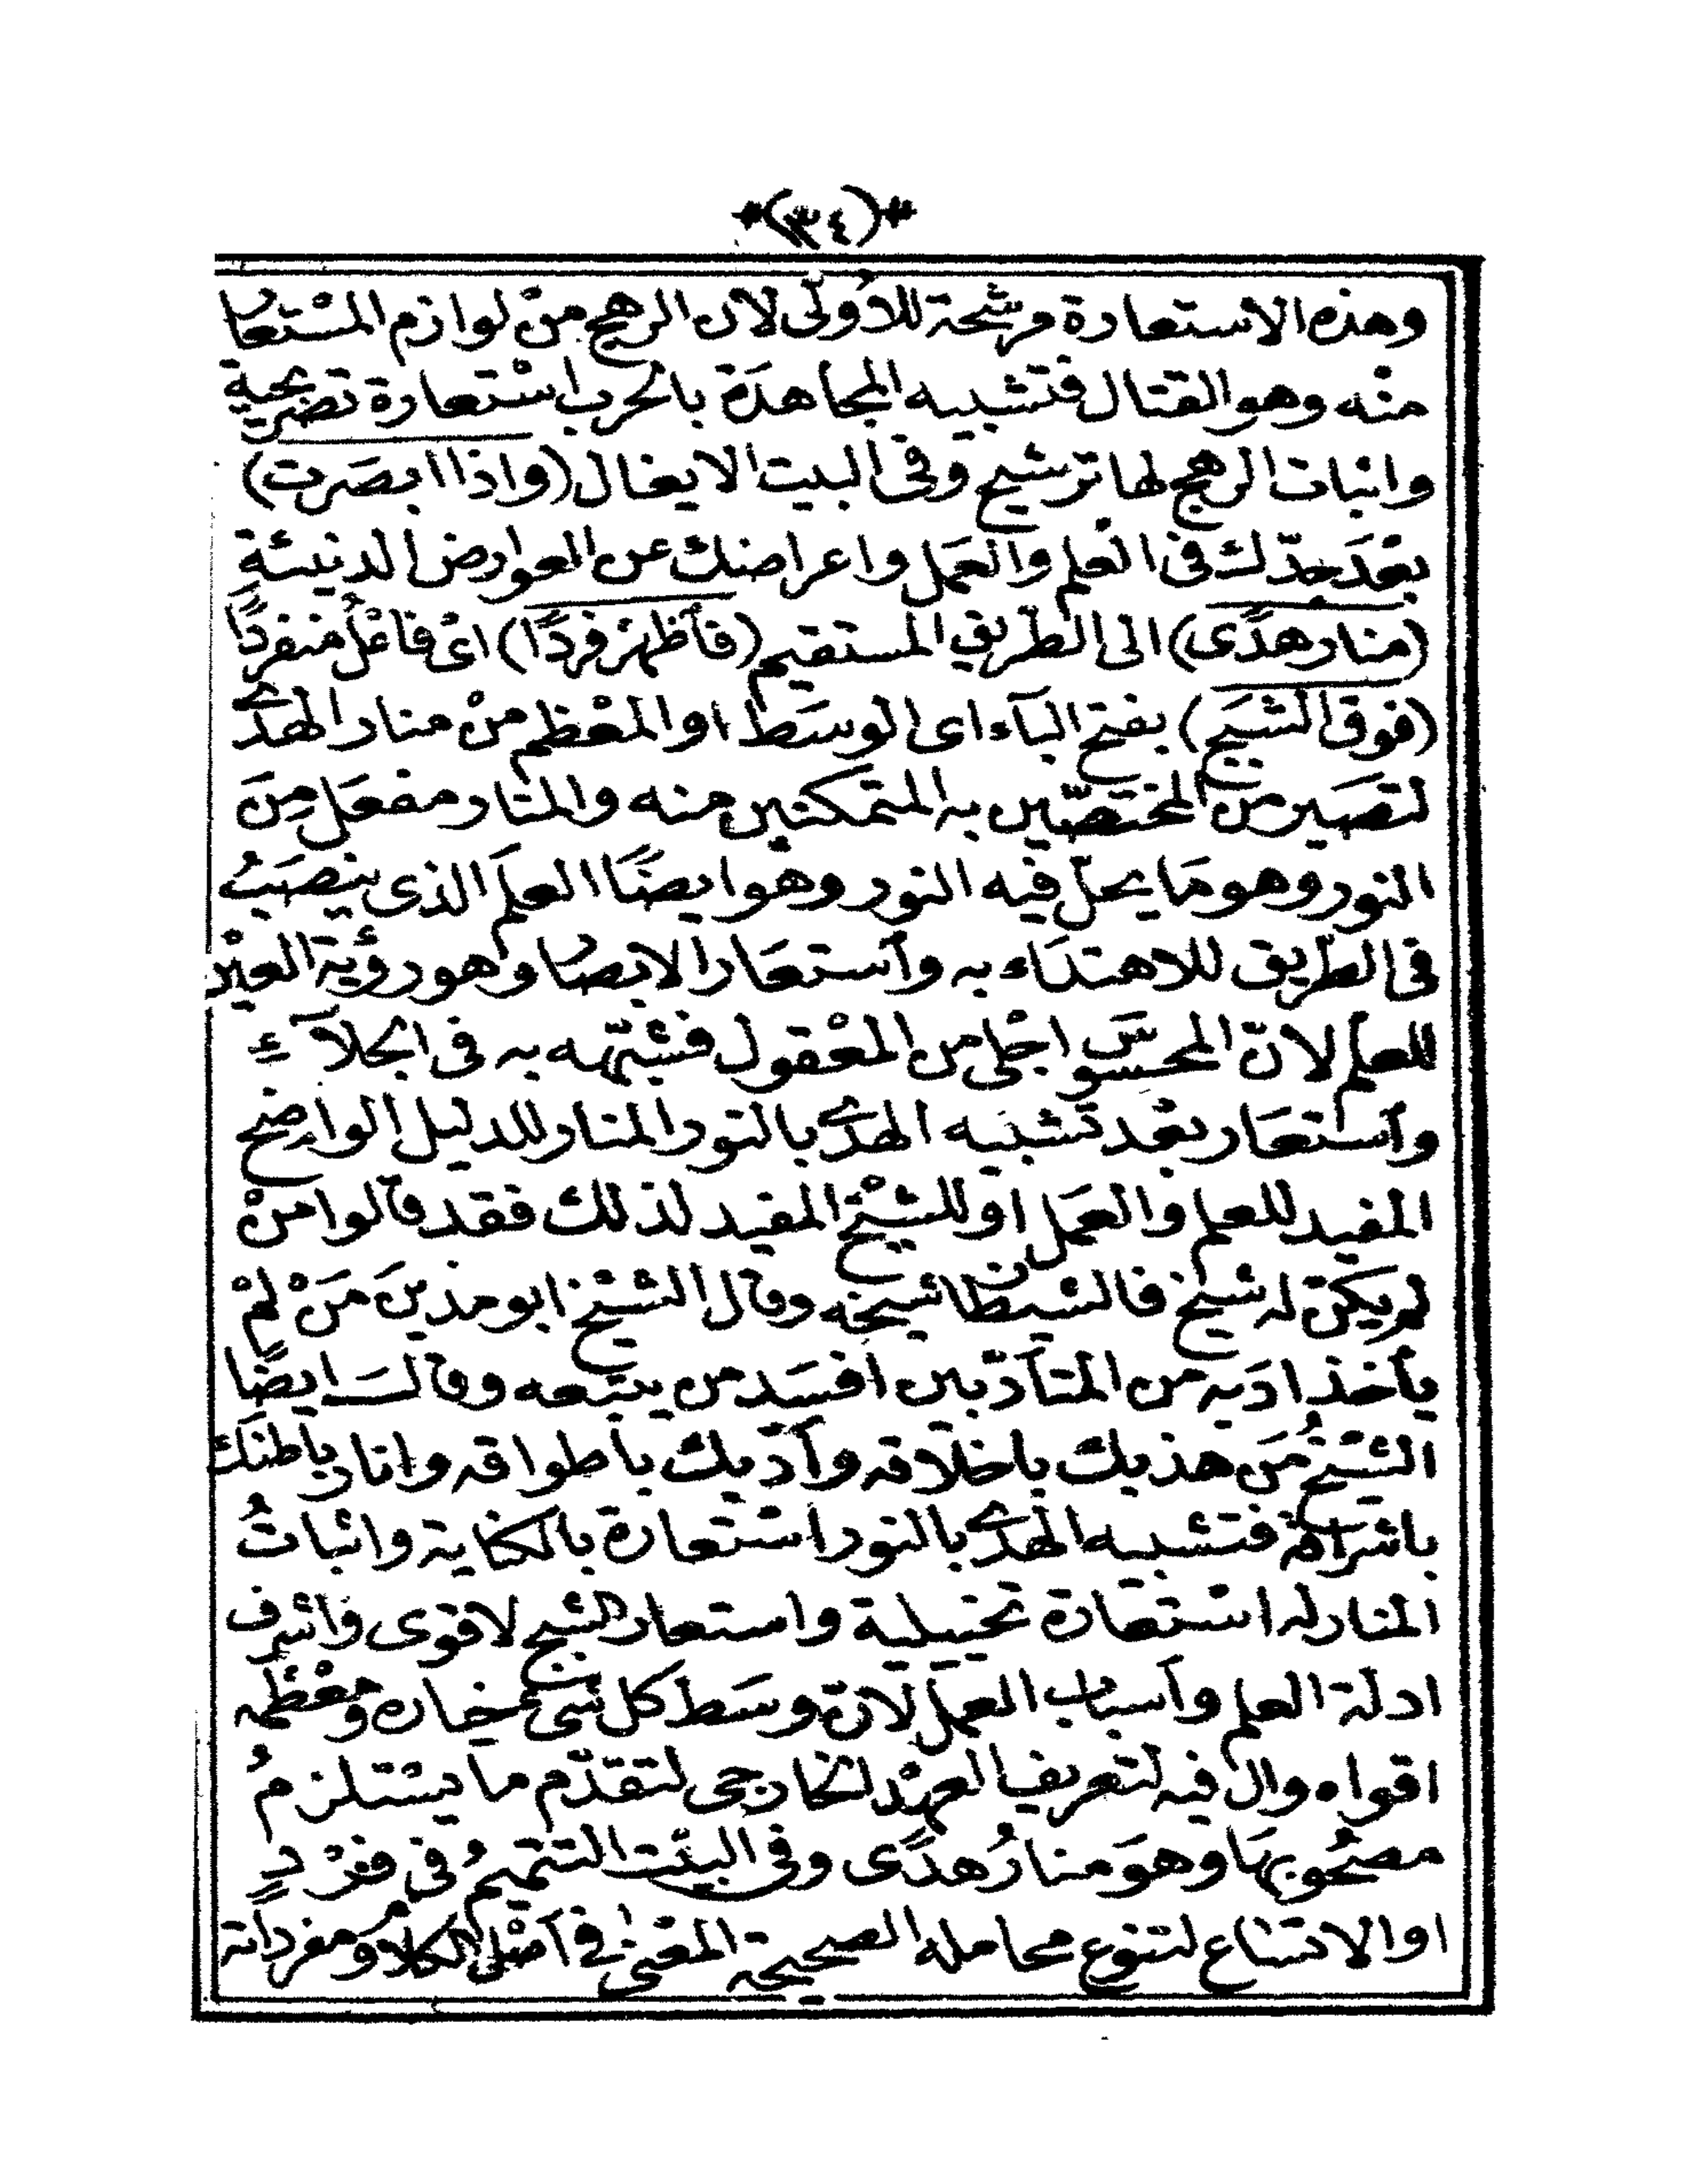 *(٣٤)*
وهذه الاستعارة مرشحة للأولى لان الرهج من لوازم المسْتعار
منْه وهو القتال فتشبيه المجاهدَة بالحرب اسْتعارة تصْريحية
واثبات الرهج لها ترشيح وفى البيت الايغال (واذا ابصَرت)
بعْدَ جدّك فى العلم والعَمل واعراضك عن العوارض الدنيئةِ
(منار هدًى) الى الطّريق المستقيم (فأظهرْ فردًا) اىْ فاعْلُ منفردًا
(فوق الثبَج) بفتح البآء اى الوسَط او المعْظم منْ منار الهدَى
لتصَير من المختصّين به المتمكنين منه والمنار مفعَل منَ
النور وهو مَا يحلّ فيه النور وهو ايضًا العلَم الذى ينصَبُ
فى الطّريق للاهتدَاء به وآستعَار الابصار وهو رؤية العيْن
للعلم لانّ المحسوسَ اجْلى من المعْقول فشبّهه به فى الجلآءِ
وآستعَار بعْد تشبيه الهدَى بالنور المنار للدليل الواضح
المفيد للعلم والعَمل او للشيْخ المفيد لذلك فقد قالوا منْ
لم يكنْ له شيخ فالشيطان شيخه وقال الشيْخ ابو مدين مَنْ لمْ
يأخذ ادَبه من المتأدّبين افسَد من يتبعه وقالَ ايضًا
الشيْخُ مَن هذبك باخلاقه وآدّبك باطواقه وانار باطنَك
باشراقه فتشبيه الهدَى بالنور اسْتعارة بالكناية واثباتُ
المنار له اسْتعارة تخييلية واستعار الثبج لاقوى واشرف
ادلة العلم وآسباب العمل لانّ وسَط كل شىء خياره ومعْظمه
اقواه وال فيه لتعريف العهْد الخارجى لتقدّم ما يسْتلزمُ
مصْحُوبهَا وهوَ منارُ هدًى وفى البيْت التتميمُ فى فرْدٍ
او الاتساع لتنوع محامله الصحيحة المعْنى فى آصْل الكلام ومفرداته